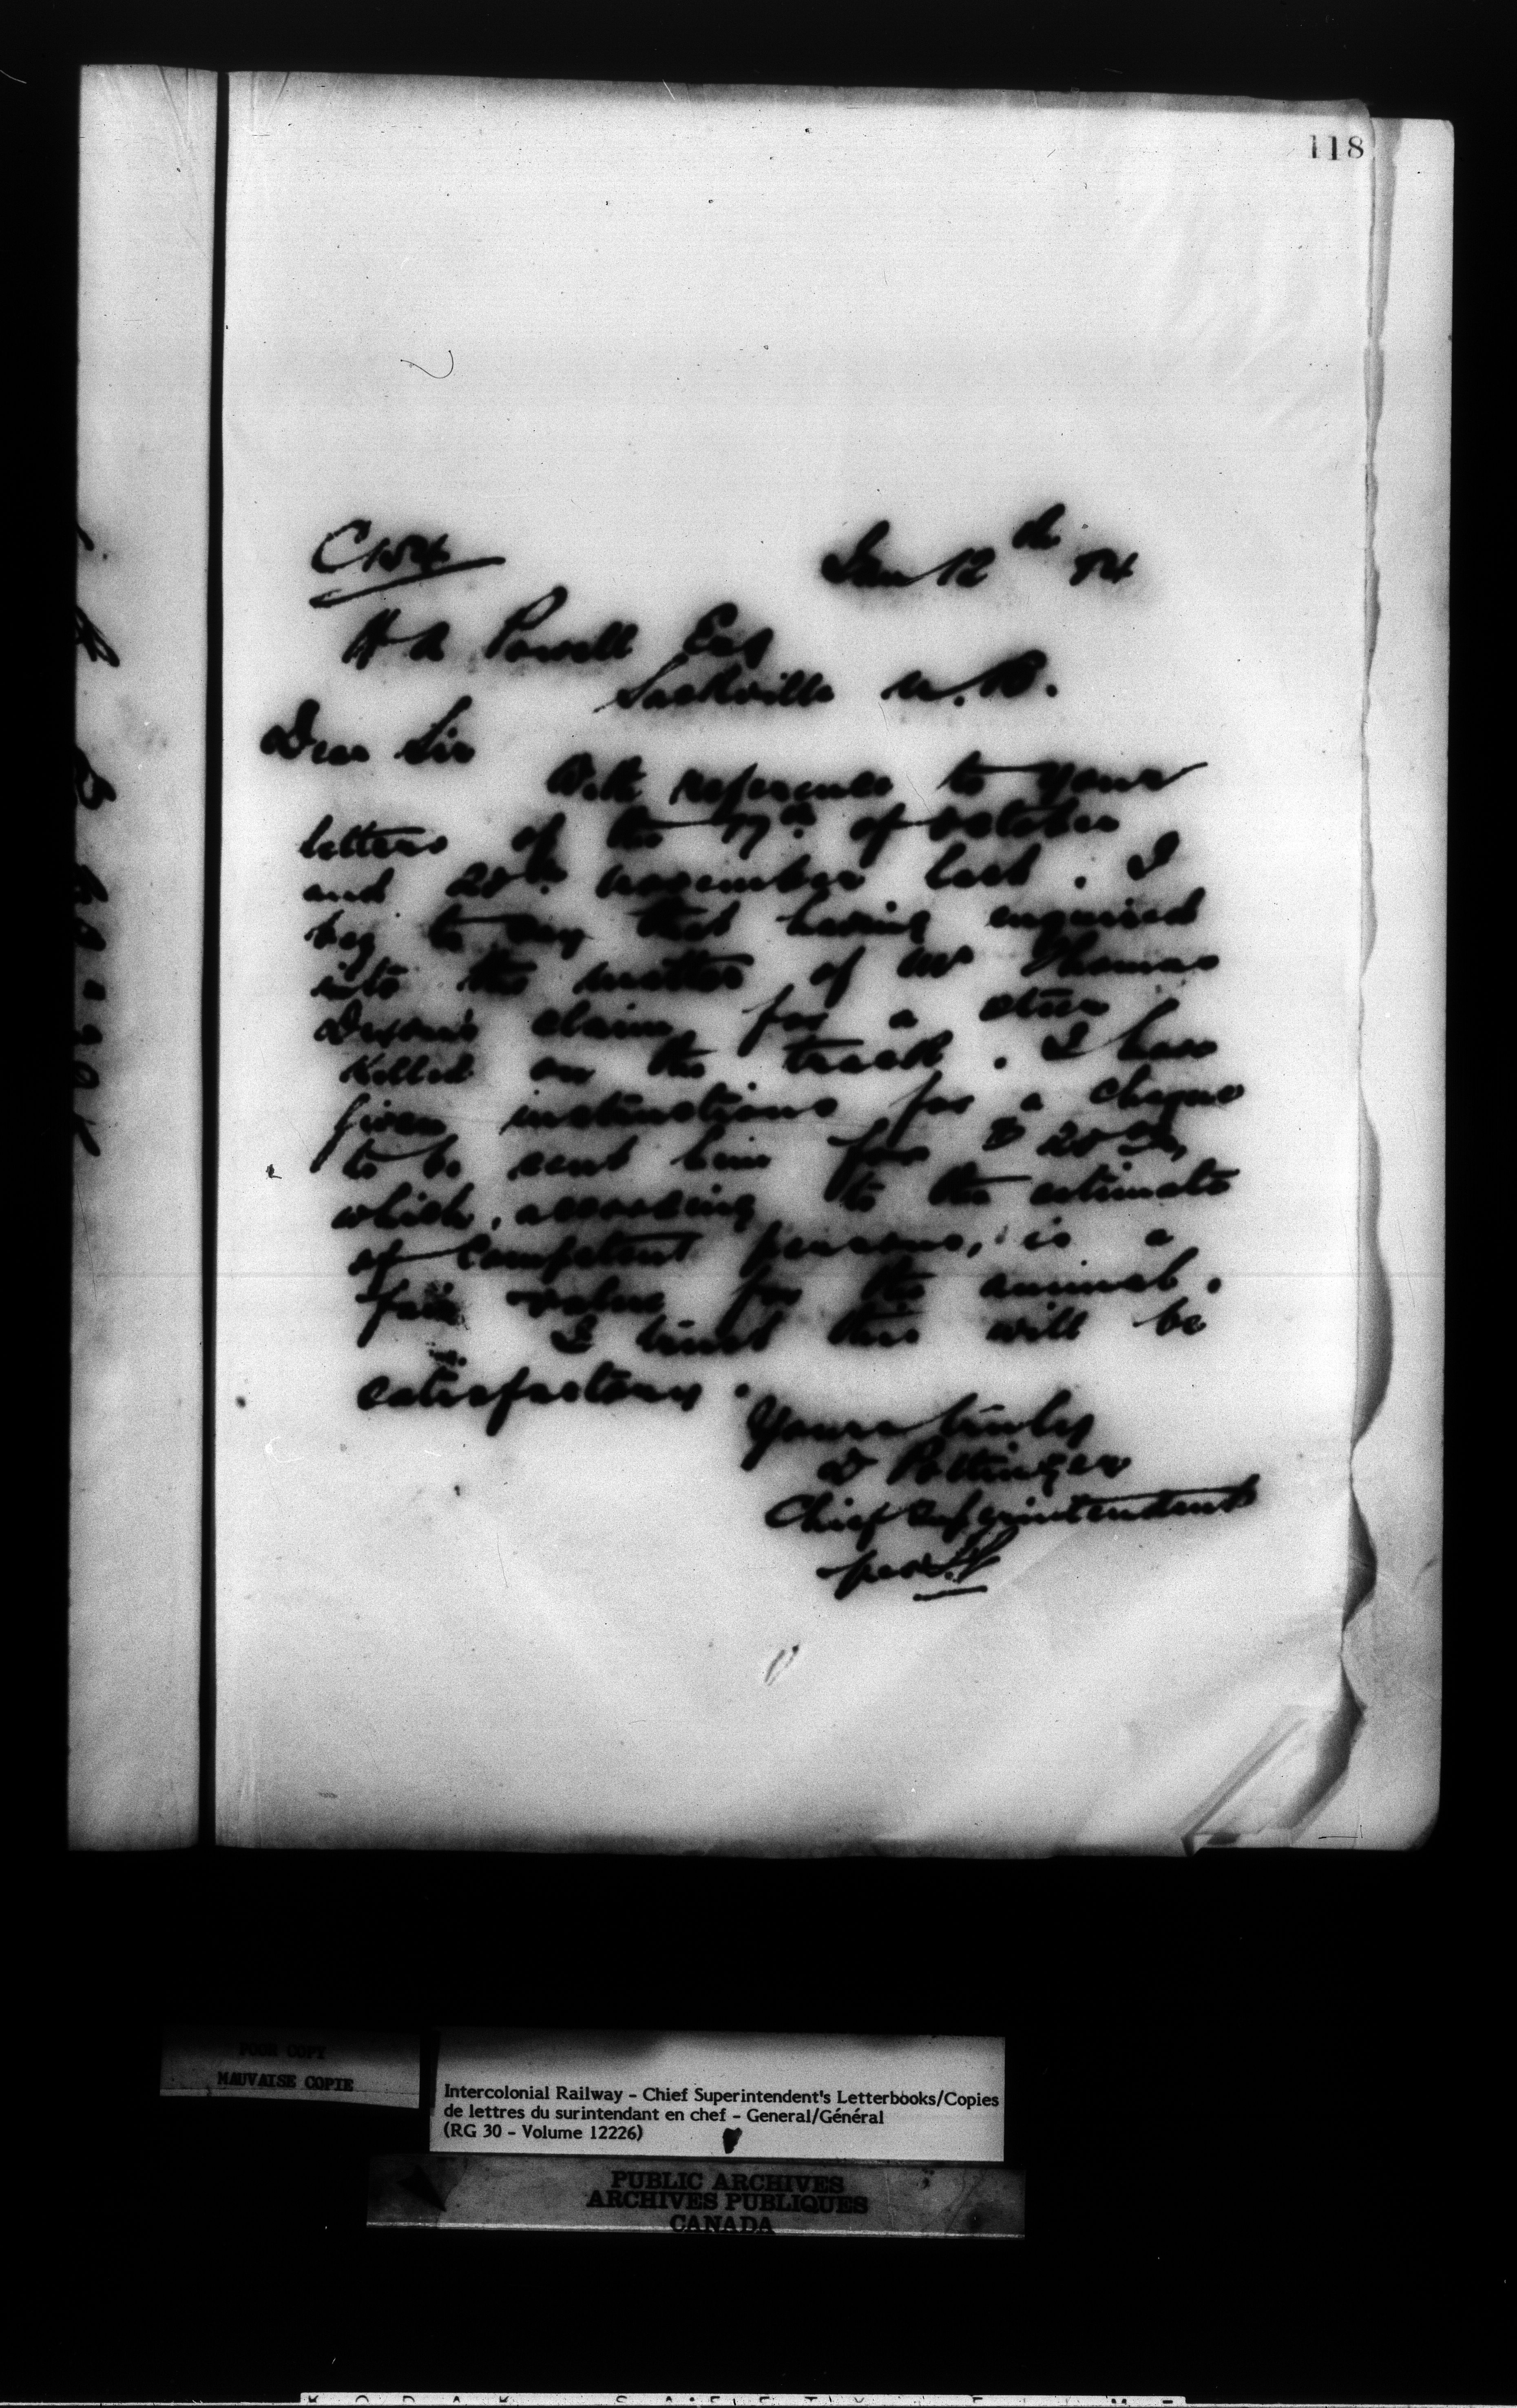 118
Jan 12th 84
H A Powell Esq
Sackville N.B.
Dear Sir
With reference to your
letters of the 17th of October
and 20th November last. I
beg to say that having enquired
into the matter of Mr Thomas
Dixon's claim for a steer
killed on the track. I have
given instructions for a cheque
to be sent him for $20
which, according to the estimate
of competent persons, is a
fair value for the animal.
I trust this will be
satisfactory.
Yours truly
D Pottinger
Chief Superintendent
per
POOR COPY
MAUVAISE COPIE
Intercolonial Railway - Chief Superintendent's Letterbooks/Copies
de lettres du surintendant en chef - General/Général
(RG 30 - Volume 12226)
PUBLIC ARCHIVES
ARCHIVES PUBLIQUES
CANADA